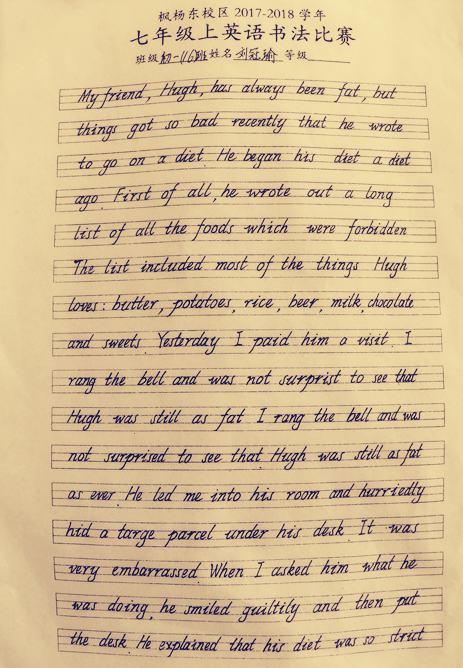 枫杨东校区 2017-2018 学年
七年级上英语书法比赛
班级 初一116班 姓名 刘冠瑜 等级
My friend, Hugh, has always been fat, but
things got so bad recently that he wrote
to go on a diet. He began his diet a diet
ago. First of all, he wrote out a long
list of all the foods which were forbidden
The list included most of the things Hugh
loves: butter, potatoes, rice, beer, milk, chocolate
and sweets. Yesterday I paid him a visit. I
rang the bell and was not surprist to see that
Hugh was still as fat I rang the bell and was
not surprised to see that Hugh was still as fat
as ever. He led me into his room and hurriedly
hid a targe parcel under his desk. It was
very embarrassed. When I asked him what he
was doing, he smiled guiltily and then put
the desk. He explained that his diet was so strict